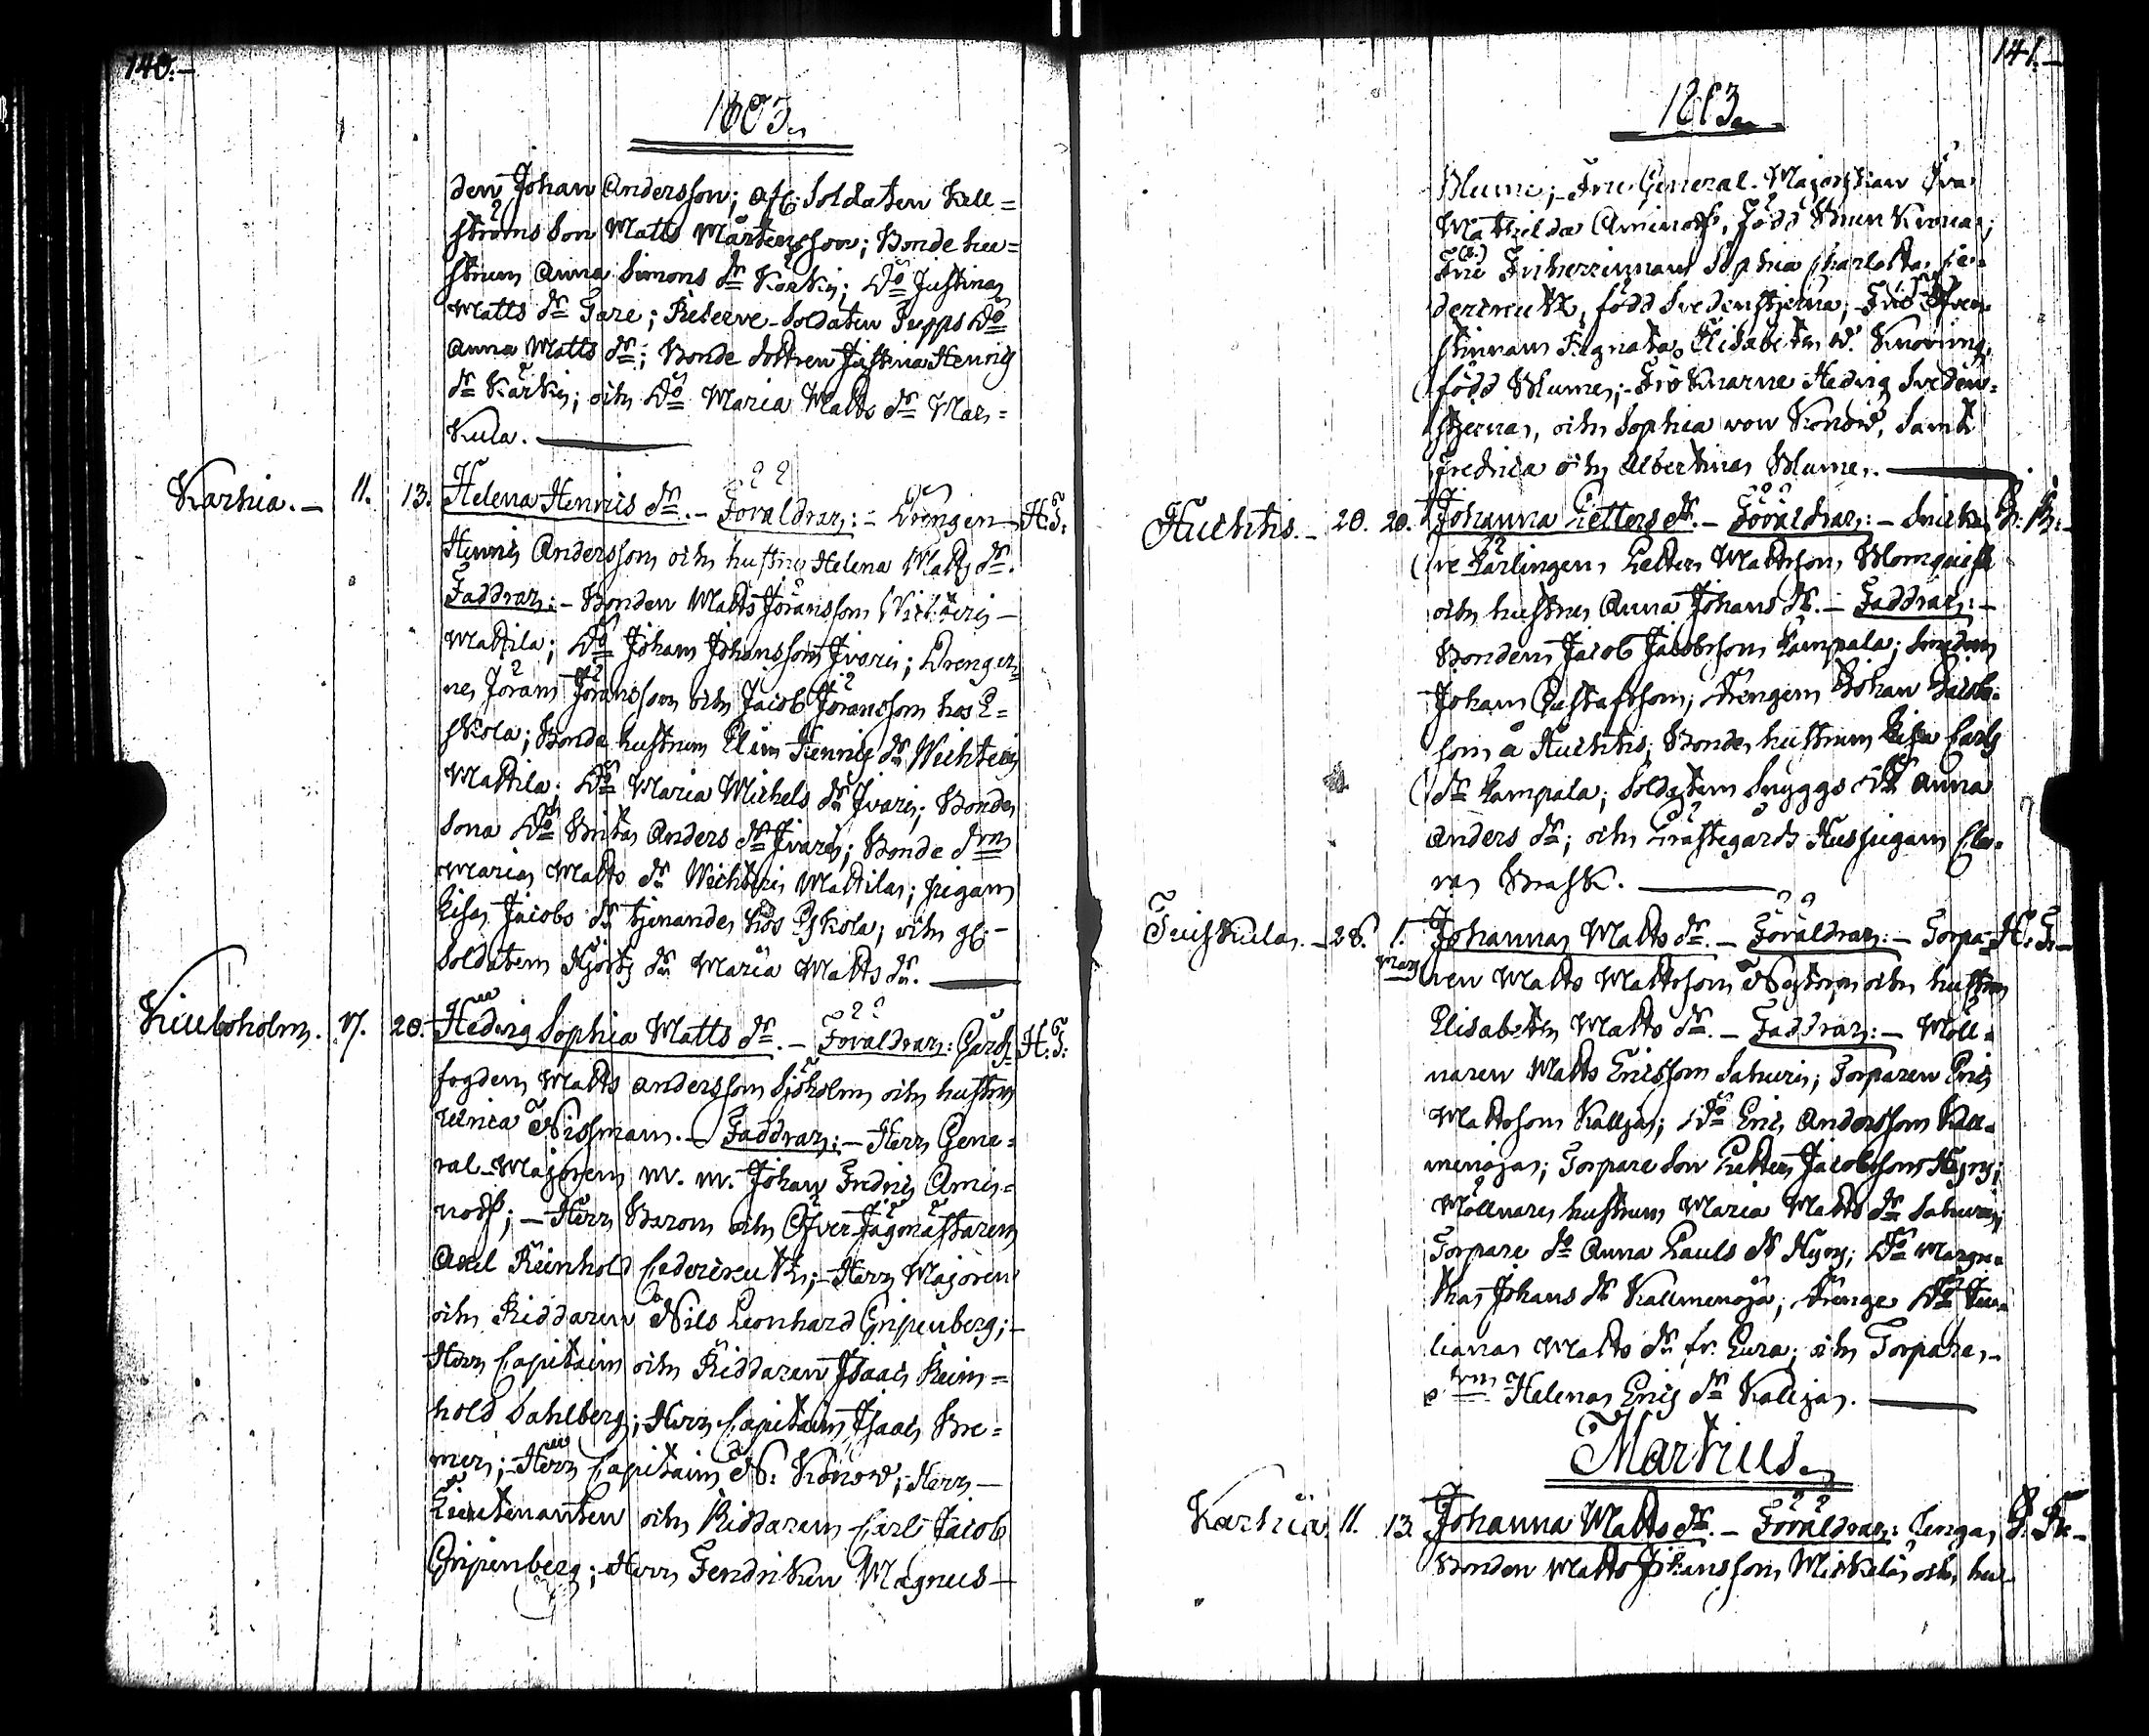 140.
1803.
den Johan Andersson; afl. Soldaten Kell=
ströms Son Matts Mårtensson; Bonde hu=
strun Anna Simons dr Kärki; Do Justina
Matts dr Tare; Reserve-Soldaten Jupps Do
Anna Matts dr; Bonde dottren Justina Henrics
dr Kärki; och Do Maria Matts dr Mar=
kula.
Karhia. 11. 13. Helena Henrics dr. - Föräldrar: - Drengen H. F:
Henric Andersson och hustru Helena Matts dr.
Faddrar: - Bonden Matts Jöransson Wichteri
Mattila; Do Johan Johansson Ivari; Drengar=
ne Jöran Jöransson och Jacob Jöransson hos E=
skola; Bonde hustrun Elin Henrics dr Wichteri
Mattila; Do Maria Michels dr Ivari; Bonde
Sona Do Brita Anders dr Ivari; Bonde drn
Maria Matts dr Wichteri Mattila; pigan
Lisa Jacobs dr tjenande hos Eskola; och gl.
Soldaten Hjorts dr Maria Matts dr.
Kiuloholm. 17. 20. Hedvig Sophia Matts dr. - Föräldrar: Gårds H. F:
fogden Matts Andersson Sjöholm och hustru
Ulrica Nissman. - Faddrar: - Herr Gene=
ral-Majoren m. m. Johan Fredric Ami=
noff; - Herr Baron och Öfver Jägmästaren
Axel Reinhold Cedercreutz; - Herr Majoren
och Riddaren Nils Leonhard Gripenberg; -
Herr Capitain och Riddaren Isaac Rein=
hold Dahlberg; Herr Capitain Isaac Bre=
mer; - Herr Capitain N: Konow; Herr
Lieutenanten och Riddaren Carl Jacob
Gripenberg; Herr Fendriken Magnus
141.
1803.
Blume; Fru General-Majorskan Eva
Mathilda Aminoff, född Brunkrona;
Fru Friherrinnan Sophia Charlotta Ce=
dercreutz, född Svedenstjerna; Fru Öfver
stinnan Regnata Elisabeth v. Knorring,
född Blume; - Fröknarne Hedvig Sveden=
stjerna, och Sophia von Konow, samt
Fredrica och Albertina Blume.
Huchtis. 20. 20. Johanna Petters dr. - Föräldrar: - Snicka
re Lärlingen Petter Mattsson Blomquist
och hustru Anna Johans dr. - Faddrar: -
Bonden Jacob Jacobsson Lampala; Smeden
Johan Gustafsson; Drengen Johan Jacobs=
son å Huchtis; Bonde hustrun Lisa Carls
dr Lampala; Soldaten Snyggs Do Anna
Anders dr; och Prästegårds Huspigan Cla=
ra Brask.
Tuiskula. 28. 1. Johanna Matts dr. - Föräldrar: - Torpa=
Mars ren Matts Mattsson Nyström och hustru
Elisabeth Matts dr. - Faddrar: - Möll=
naren Matts Ericsson Sahuri; Torparen Eric
Mattsson Kallja; Do Eric Andersson Kall=
menoja; Torpare Son Petter Jacobsson Hyry;
Möllnare hustrun Maria Matts dr Sahuri;
Torpare Do Anna Pauls dr Hyry; Do Margre=
tha Johans dr Kallmenoja; Drenge Do Ju=
liana Matts dr fr. Eura; och Torpare
drn Helena Erics dr Kallja.
Martius.
Karhia 11. 13. Johanna Matts dr. - Föräldrar: Unga
Bonden Matts Johansson Mickelä och hu